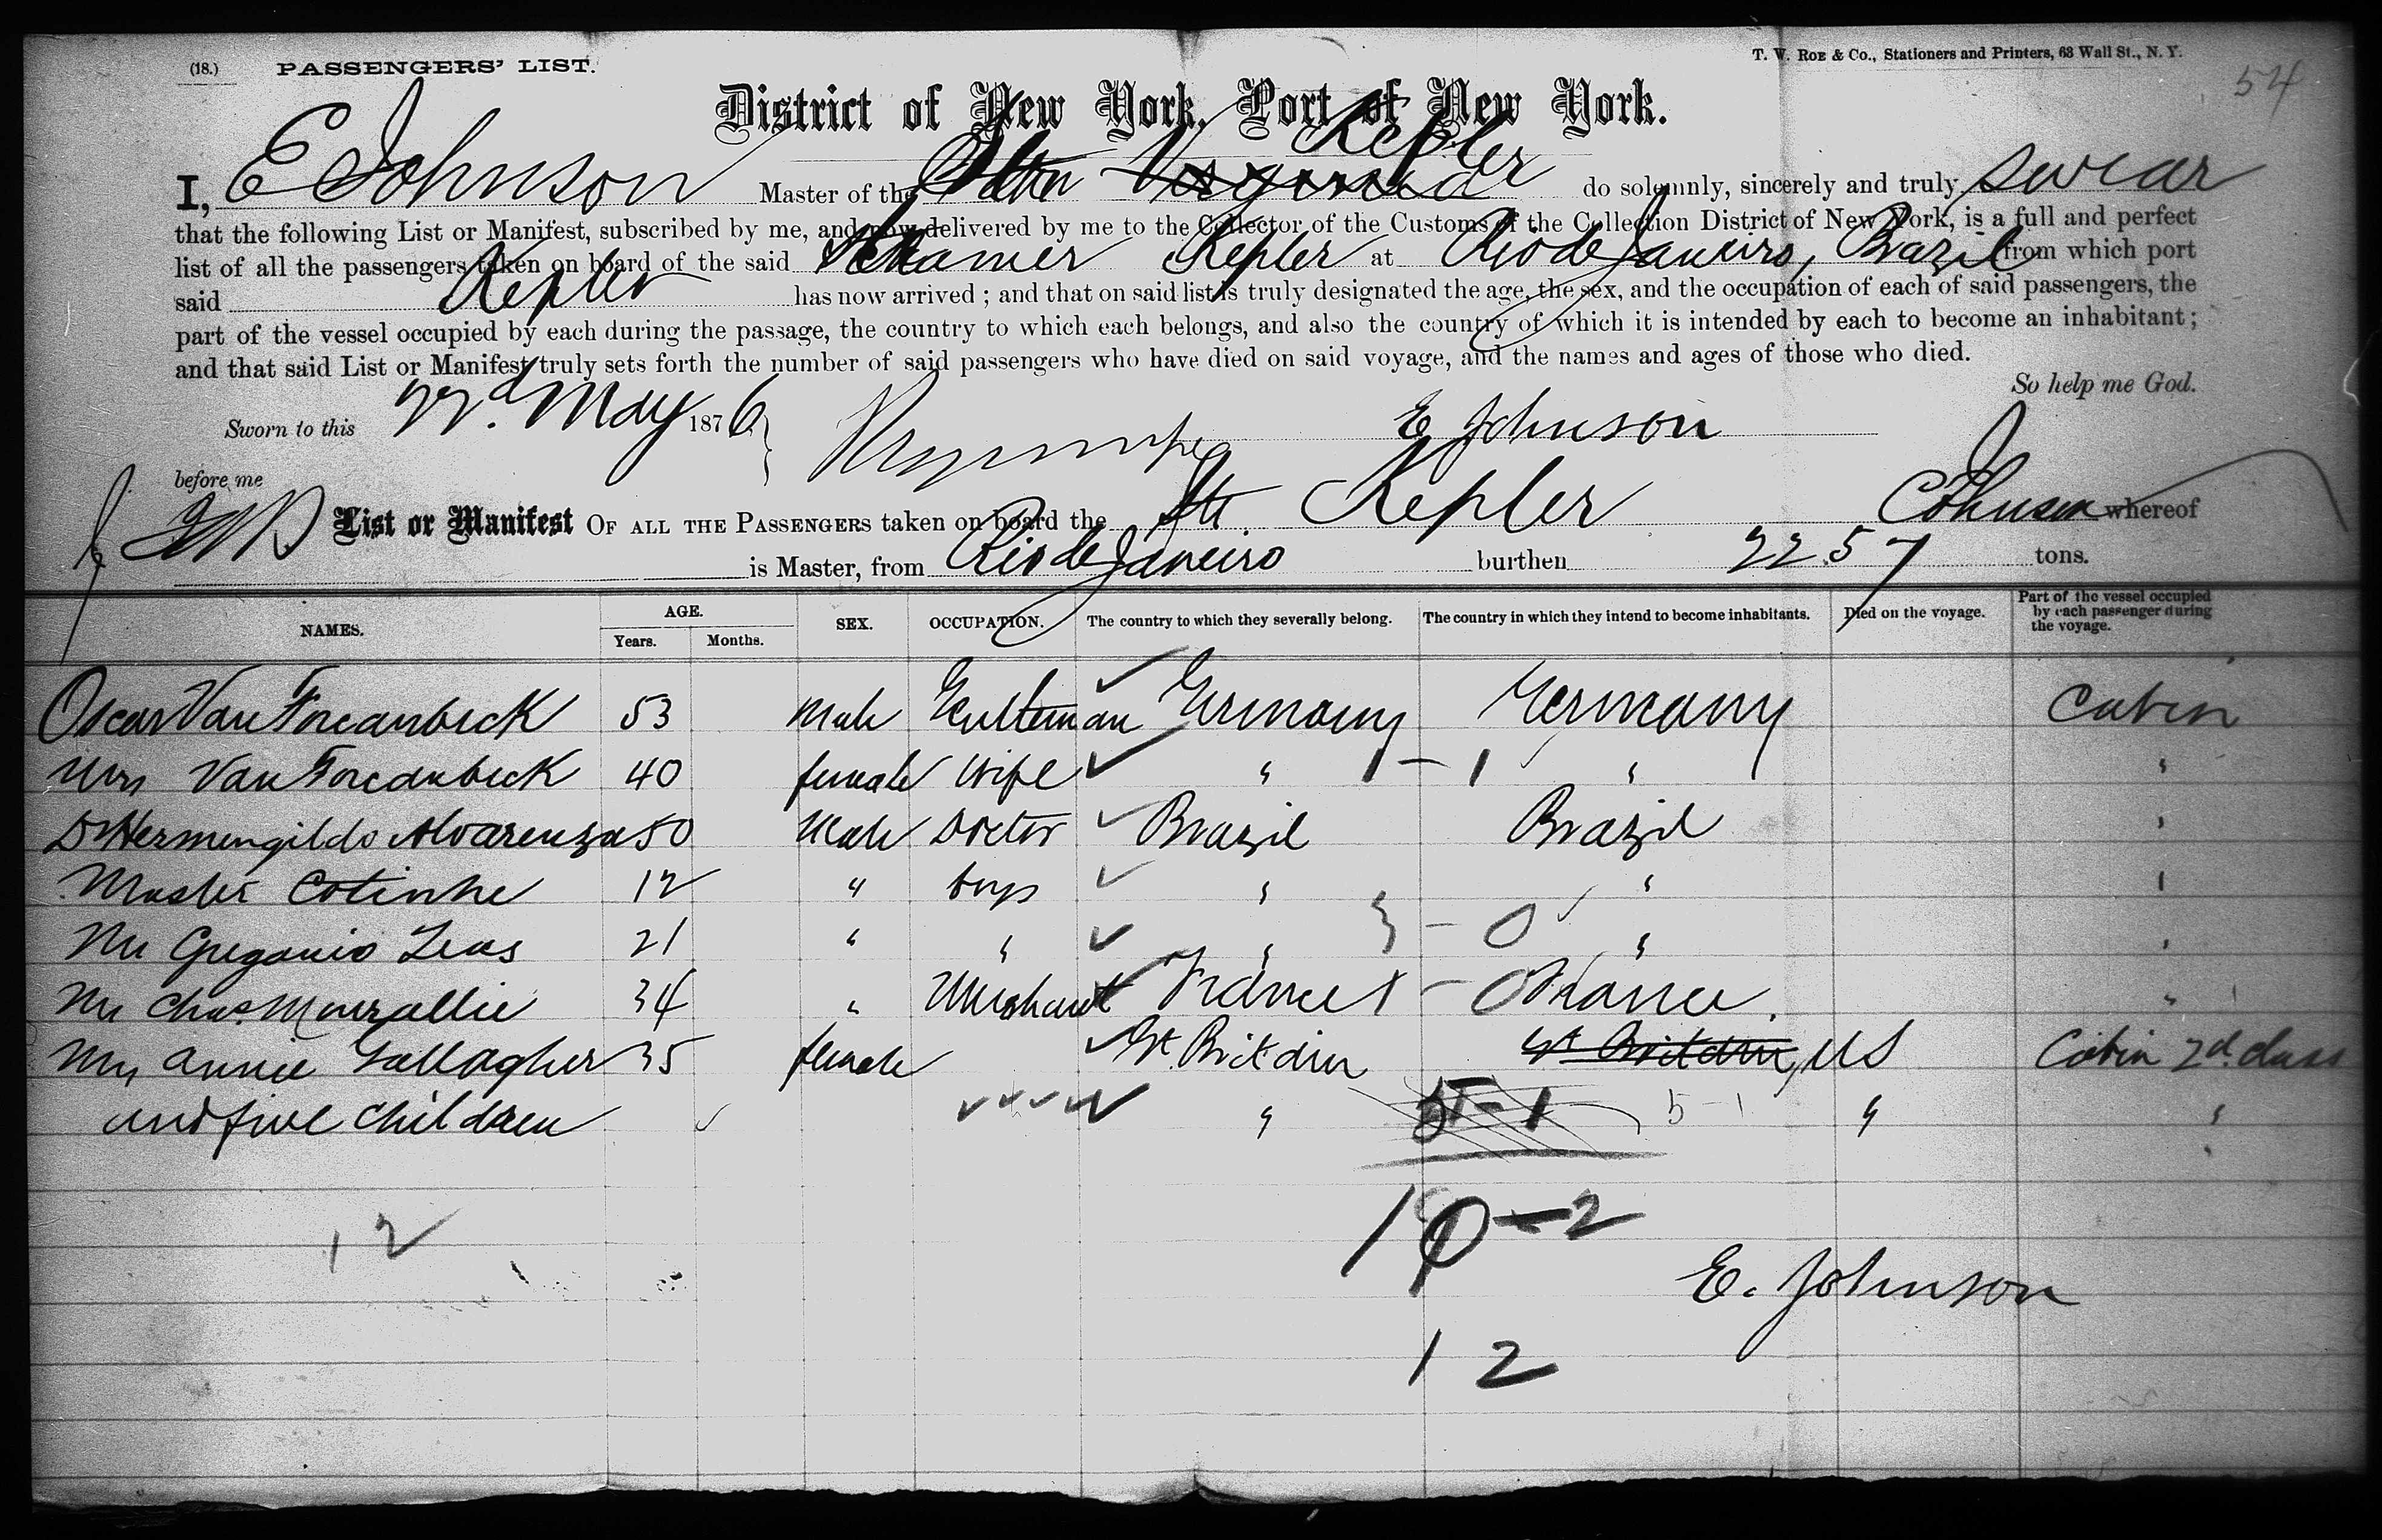 (18.) PASSENGERS' LIST. T. W. ROE & Co., Stationers and Printers, 63 Wall St., N. Y.
54
District of New York, Port of New York.
Kepler
I, E Johnson Master of the Str Virginia do solemnly, sincerely and truly swear
that the following List or Manifest, subscribed by me, and now delivered by me to the Collector of the Customs of the Collection District of New York, is a full and perfect
list of all the passengers taken on board of the said Steamer Kepler at Rio de Janeiro, Brazil from which port
said Kepler has now arrived; and that on said list is truly designated the age, the sex, and the occupation of each of said passengers, the
part of the vessel occupied by each during the passage, the country to which each belongs, and also the country of which it is intended by each to become an inhabitant;
and that said List or Manifest truly sets forth the number of said passengers who have died on said voyage, and the names and ages of those who died.
So help me God.
Sworn to this 22d. May 1876 E Johnson
before me
List or Manifest OF ALL THE PASSENGERS taken on board the Str Kepler E Johnson whereof
is Master, from Rio de Janeiro burthen 2257 tons.
NAMES. AGE. Years. Months. SEX. OCCUPATION. The country to which they severally belong. The country in which they intend to become inhabitants. Died on the voyage. Part of the vessel occupied by each passenger during the voyage.
Oscar Van Forcanbeck 53 Male Gentleman Germany Germany Cabin
Mrs Van Forcanbeck 40 female Wife " 1 - 1 " "
Dr Hermengildo Alvarenza 50 Male Doctor Brazil Brazil "
Master Cotinho 12 " boys " " "
Mr Gregorio 21 " " " } - 0 " "
Mr Chas. 34 " Merchant France 1 - 0 France. "
Mrs Annie Gallagher 35 female Gt. Britain Gt Britain, US Cabin 2d. class
and five children " 5 - 1 5 - 1 " "
12
10 - 2
E. Johnson
12